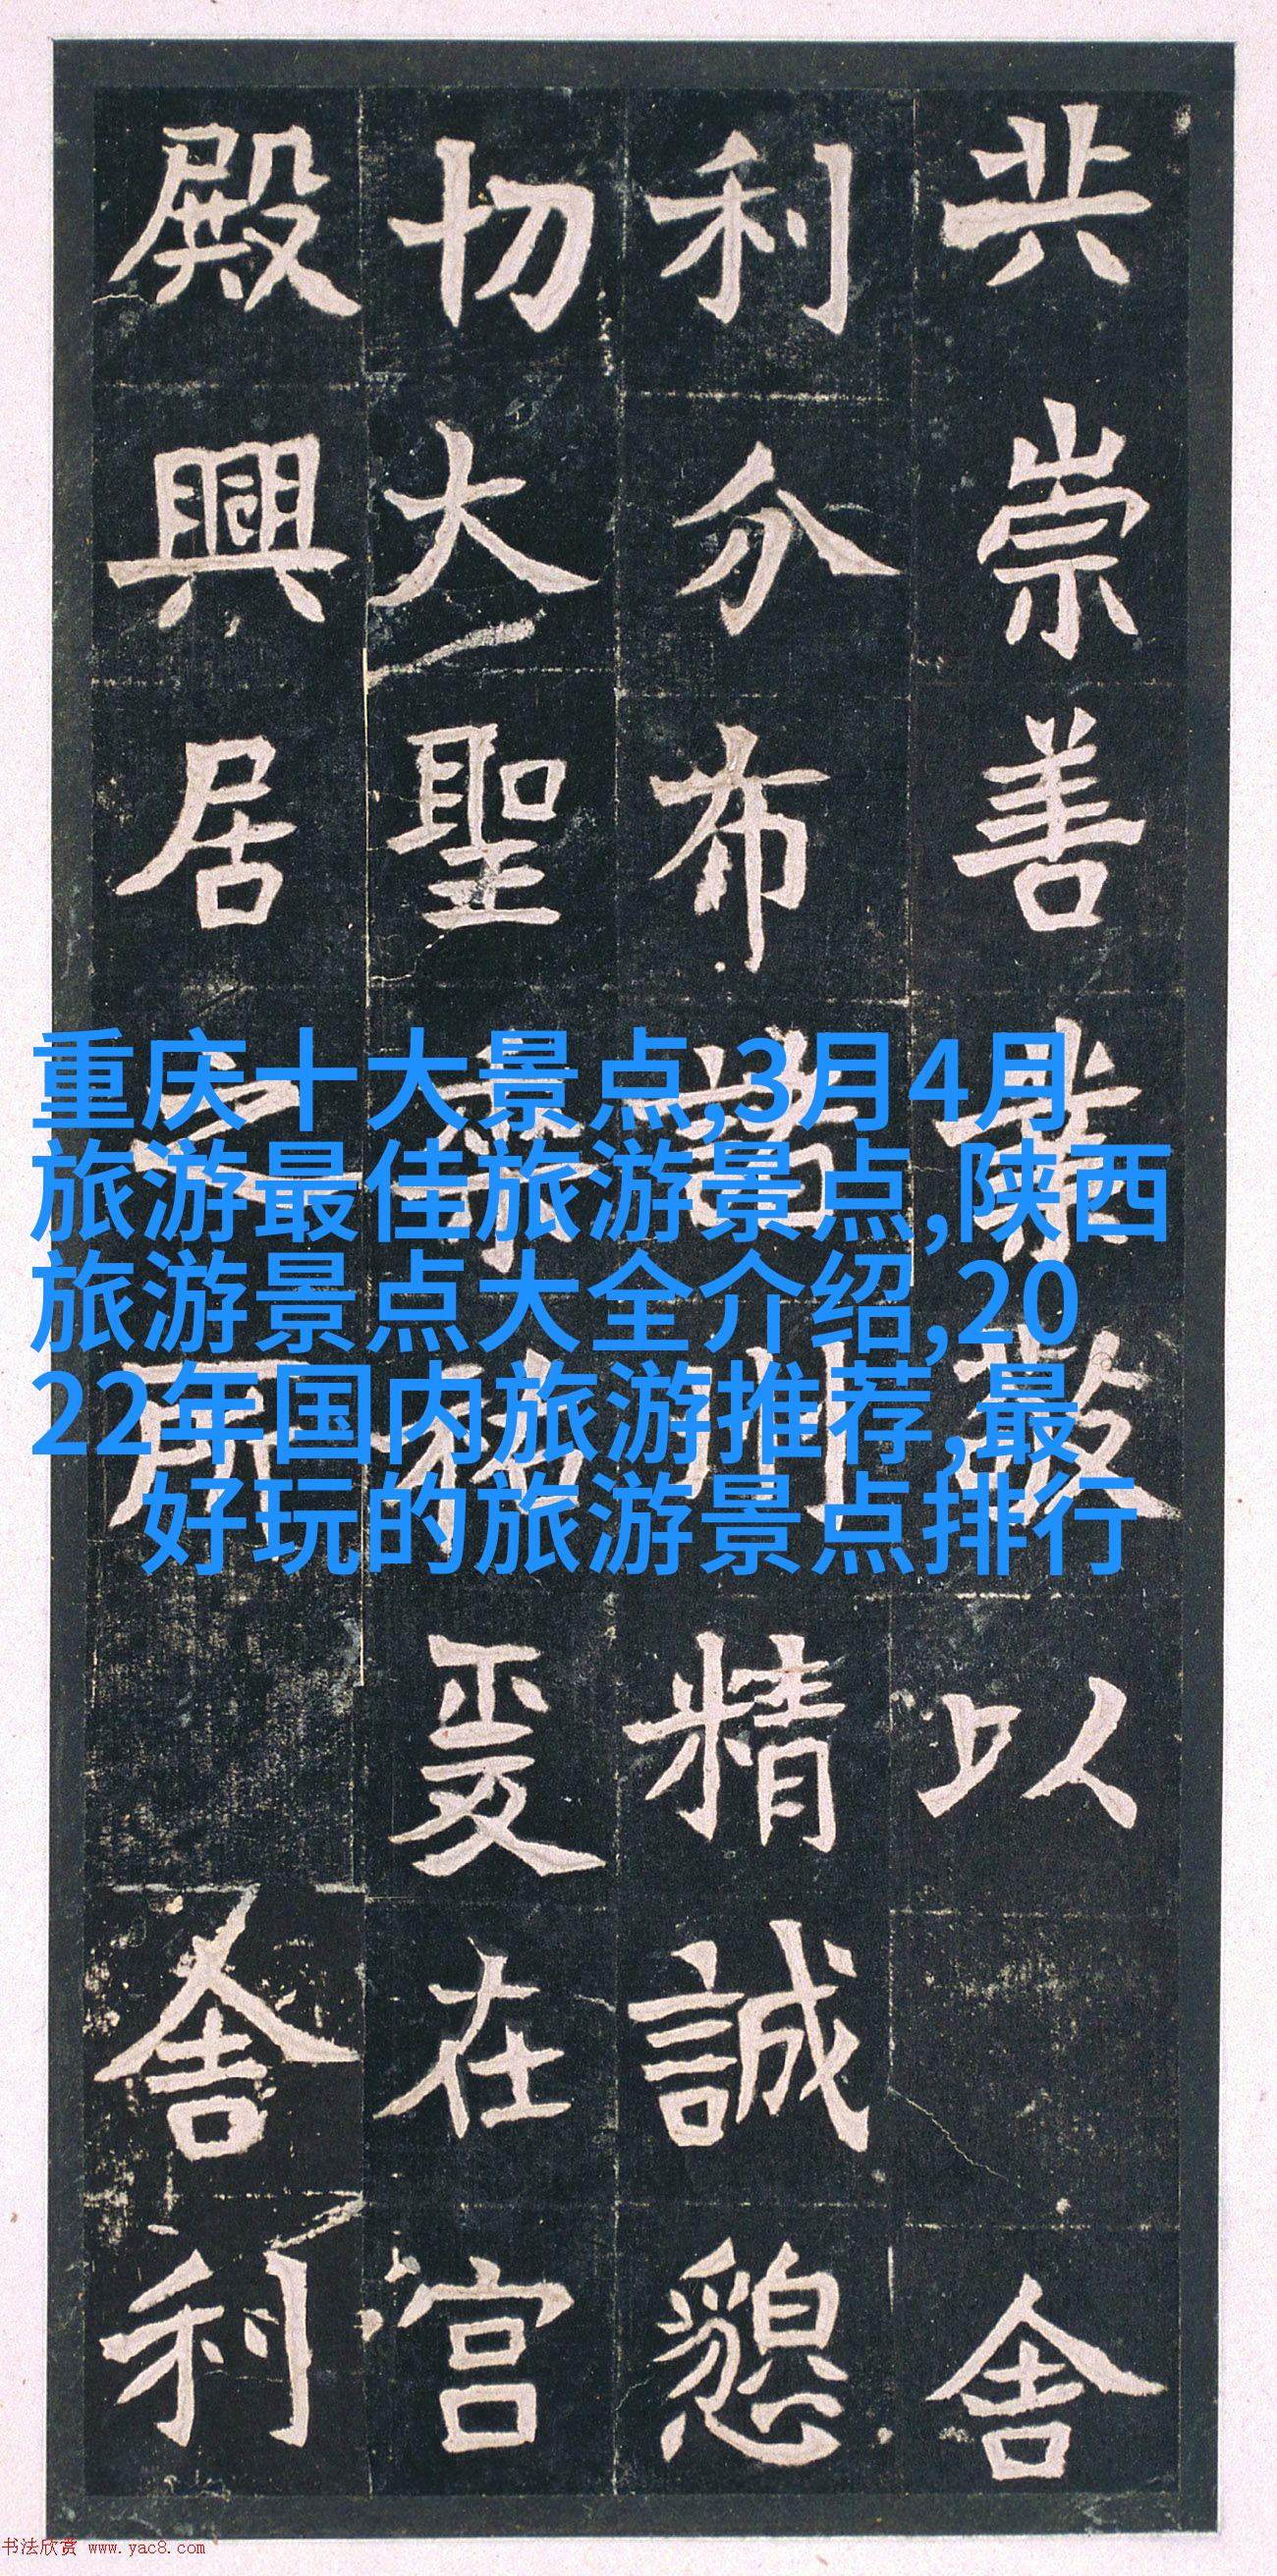 共崇善業敬以舍
利分布諸州精誠懇
切大聖祐爰在宫
殿興居之所舍利
重庆十大景点,3月4月
旅游最佳旅游景点,陕西
旅游景点大全介绍,20
22年国内旅游推荐,最
好玩的旅游景点排行
书法欣赏 www.yac8.com